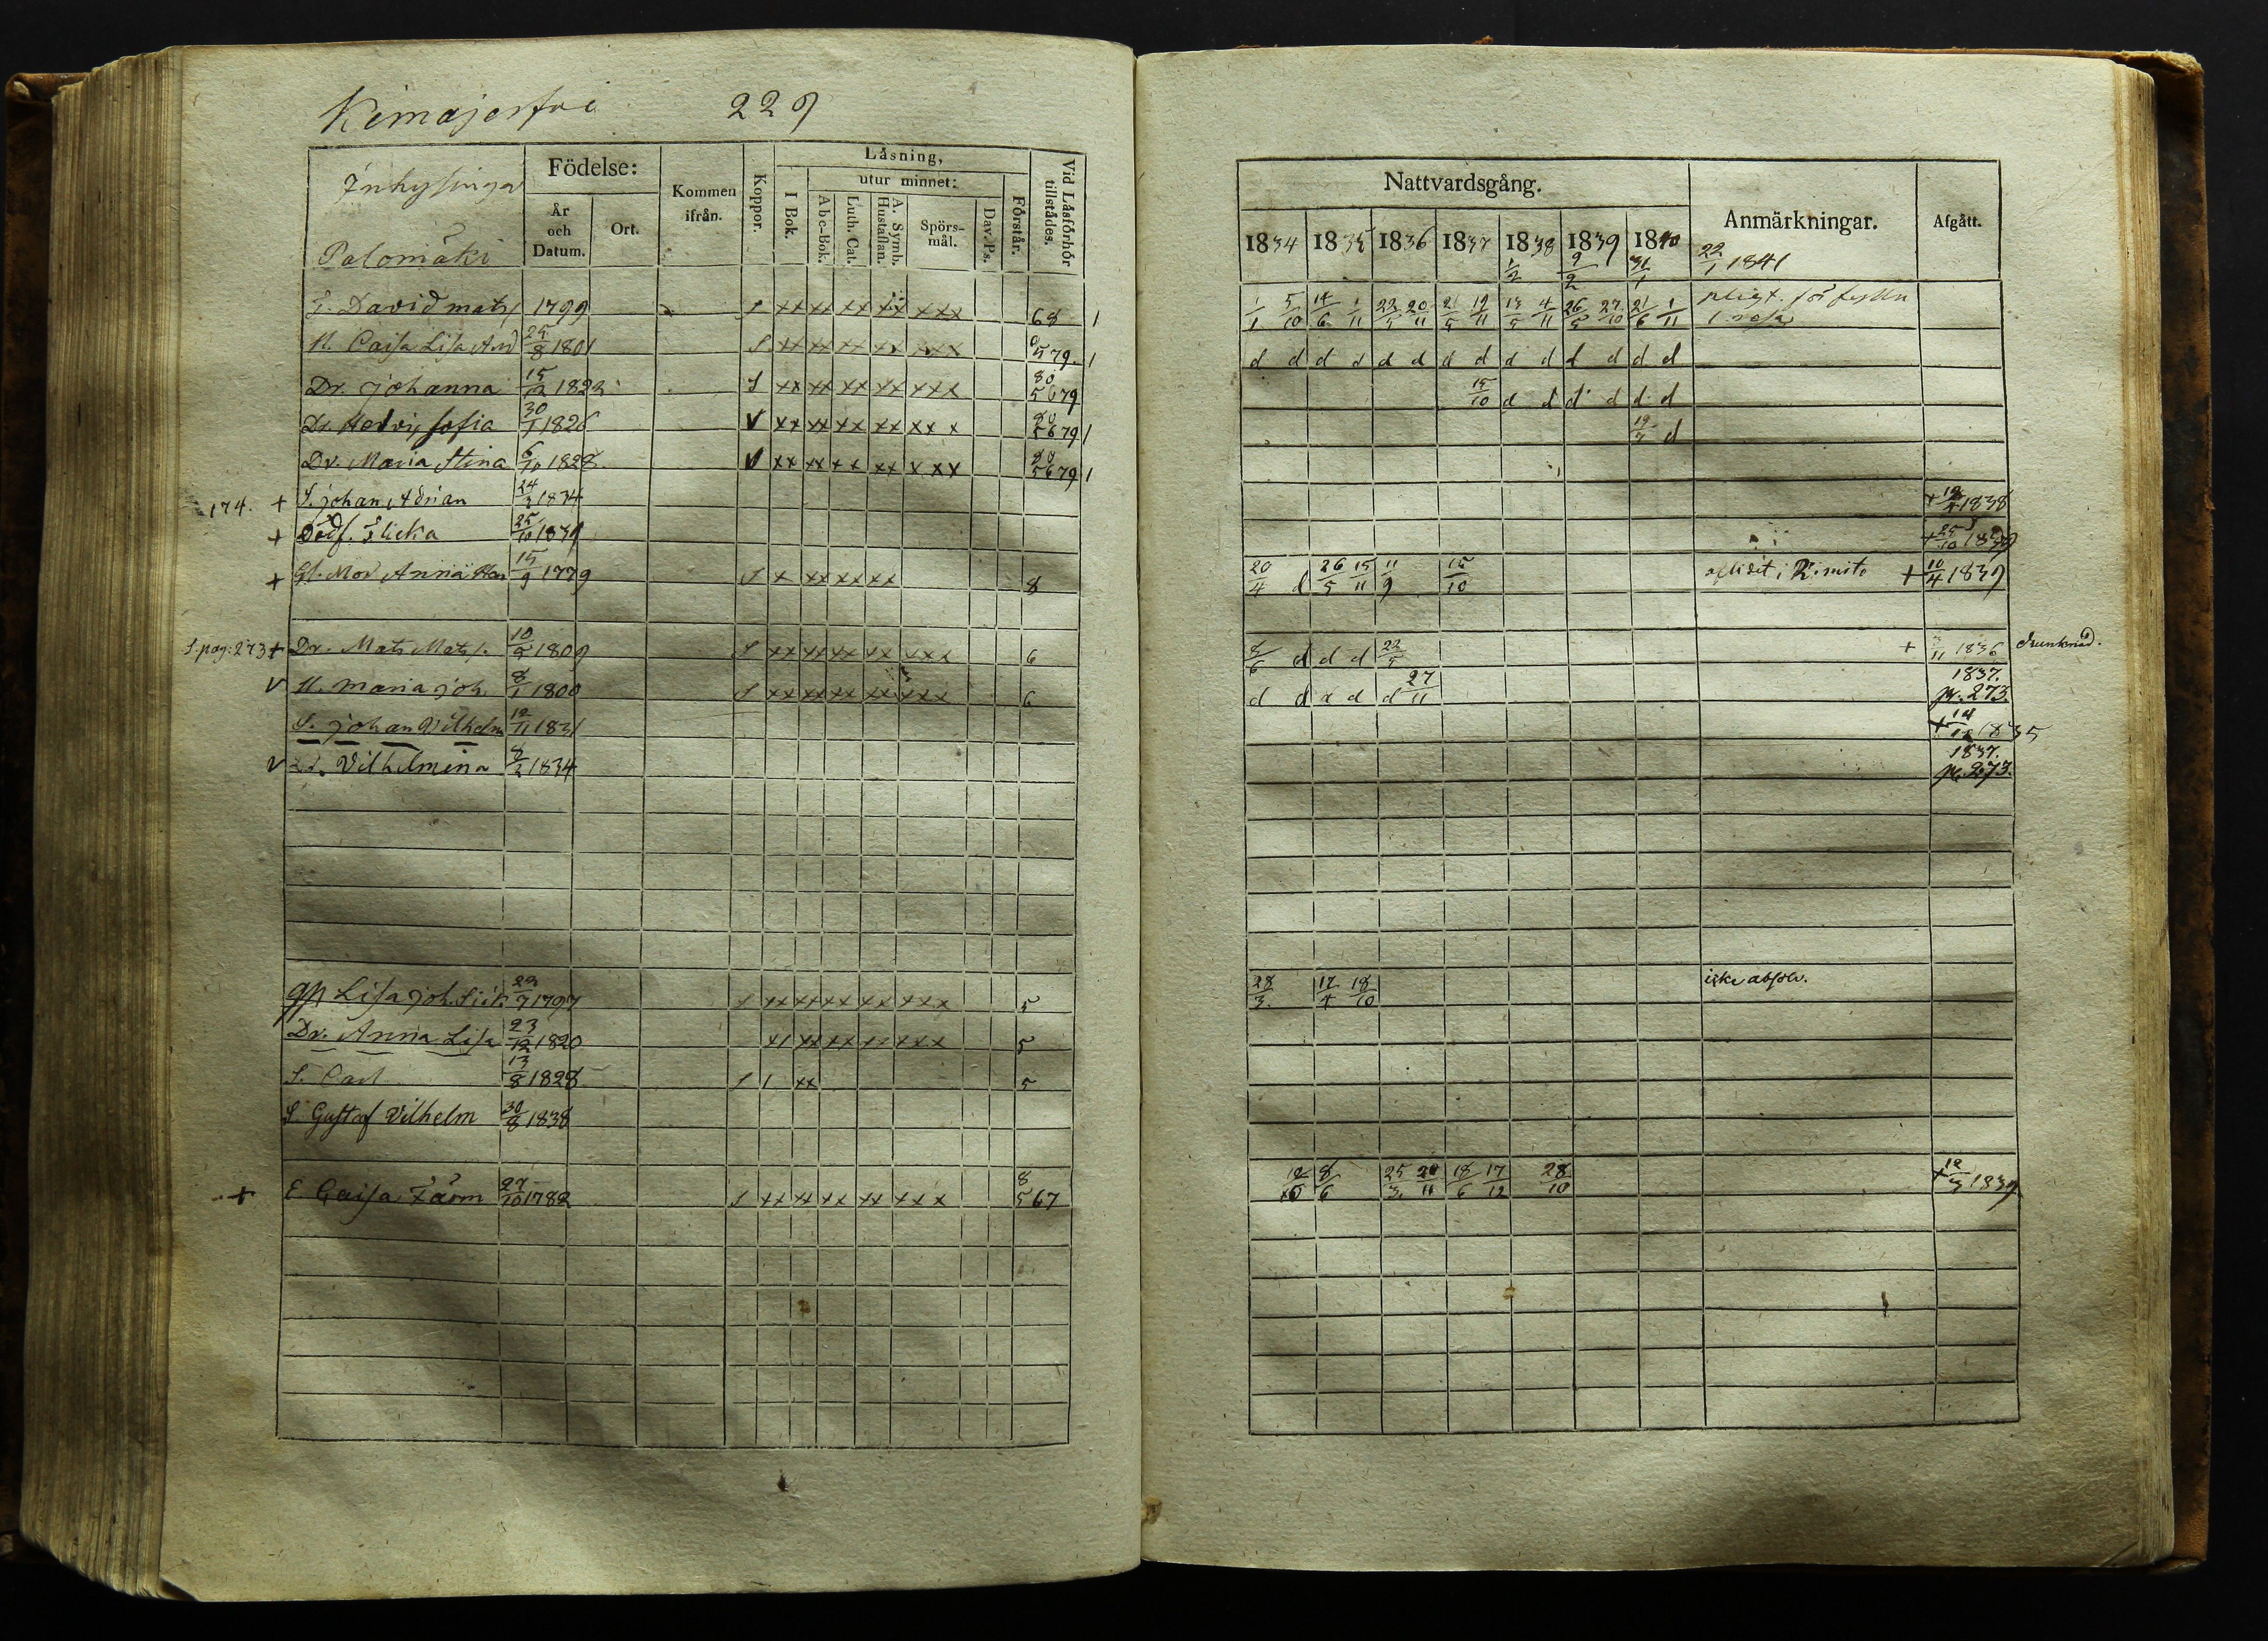 229
Inhysinga
Palomäki
Födelse:
År och Datum.
Ort.
Kommen ifrån.
Koppor.
Läsning,
utur minnet:
I Bok.
Abc-Bok.
Luth. Cat.
A. Symb. Hustaflan.
Spörs-mål.
Dav. Ps.
Förstår.
Vid Läsförhör tillstädes.
David Mats 1799 S xx xx xx xx xxx 68 1
H. Caisa Lisa And 25/8 1801 S xx xx xx xx xxx 579 1
Dr. Johanna 15/12 1822 S xx xx xx xx xxx 80 5679
Dr. Hedvig Sofia 30/1 1826 V xx xx xx xx xx x 80 5679 1
Dr. Maria Stina 6/10 1828 V xx xx xx xx x xx 80 5679 1
174. + S. Johan Adrian 24/3 1834
+ Dödf. Flicka 25/10 1839
+ Gl. Mor Anna 15/9 1779 S x xx xx xx 8
S. pag: 273 + Dr. Mats Mats. 10/9 1809 S xx xx xx xx xxx 6
V H. Maria Joh. 8/1 1800 S xx xx xx xx xxx 6
S. Johan Vilhelm 12/11 1831
V D. Vilhelmina 8/2 1834
Lisa Joh. 1797 S xx xx xx xx xxx 5
Dr. Anna Lisa 23/12 1820 xx xx xx xxx 5
S. Carl 13/8 1828 S 1 xx 5
S. Gustaf Vilhelm 30/8 1838
+ E. Caisa 27/10 1782 S xx xx xx xx xxx 8 567
Nattvardsgång.
Anmärkningar.
Afgått.
1834 1835 1836 1837 1838 1839 1840
1/2 9/2 31/1 22/1 1841
1/1 5/10 14/6 1/11 22/5 20/11 21/5 19/11 13/5 4/11 26/5 27/10 21/6 1/11 pligt. för fylleri
1 resa
d d d d d d d d d d d d d d
15/10 d d d d d d
19/7 d
+ 1838
+ 25/10 1839
20/4 d 26/5 15/11 11/9 15/10 aflidit i Kimito + 10/4 1839
8/6 d d d 22/5 + 11 1836 drunknad.
d d d d d 27/11 1837. p. 273.
+ 1835
1837.
p. 273.
28/3. 17/4 18/10 icke absolv.
8/6 25/3 20/11 18/6 17/12 28/10 + 12/3 1839